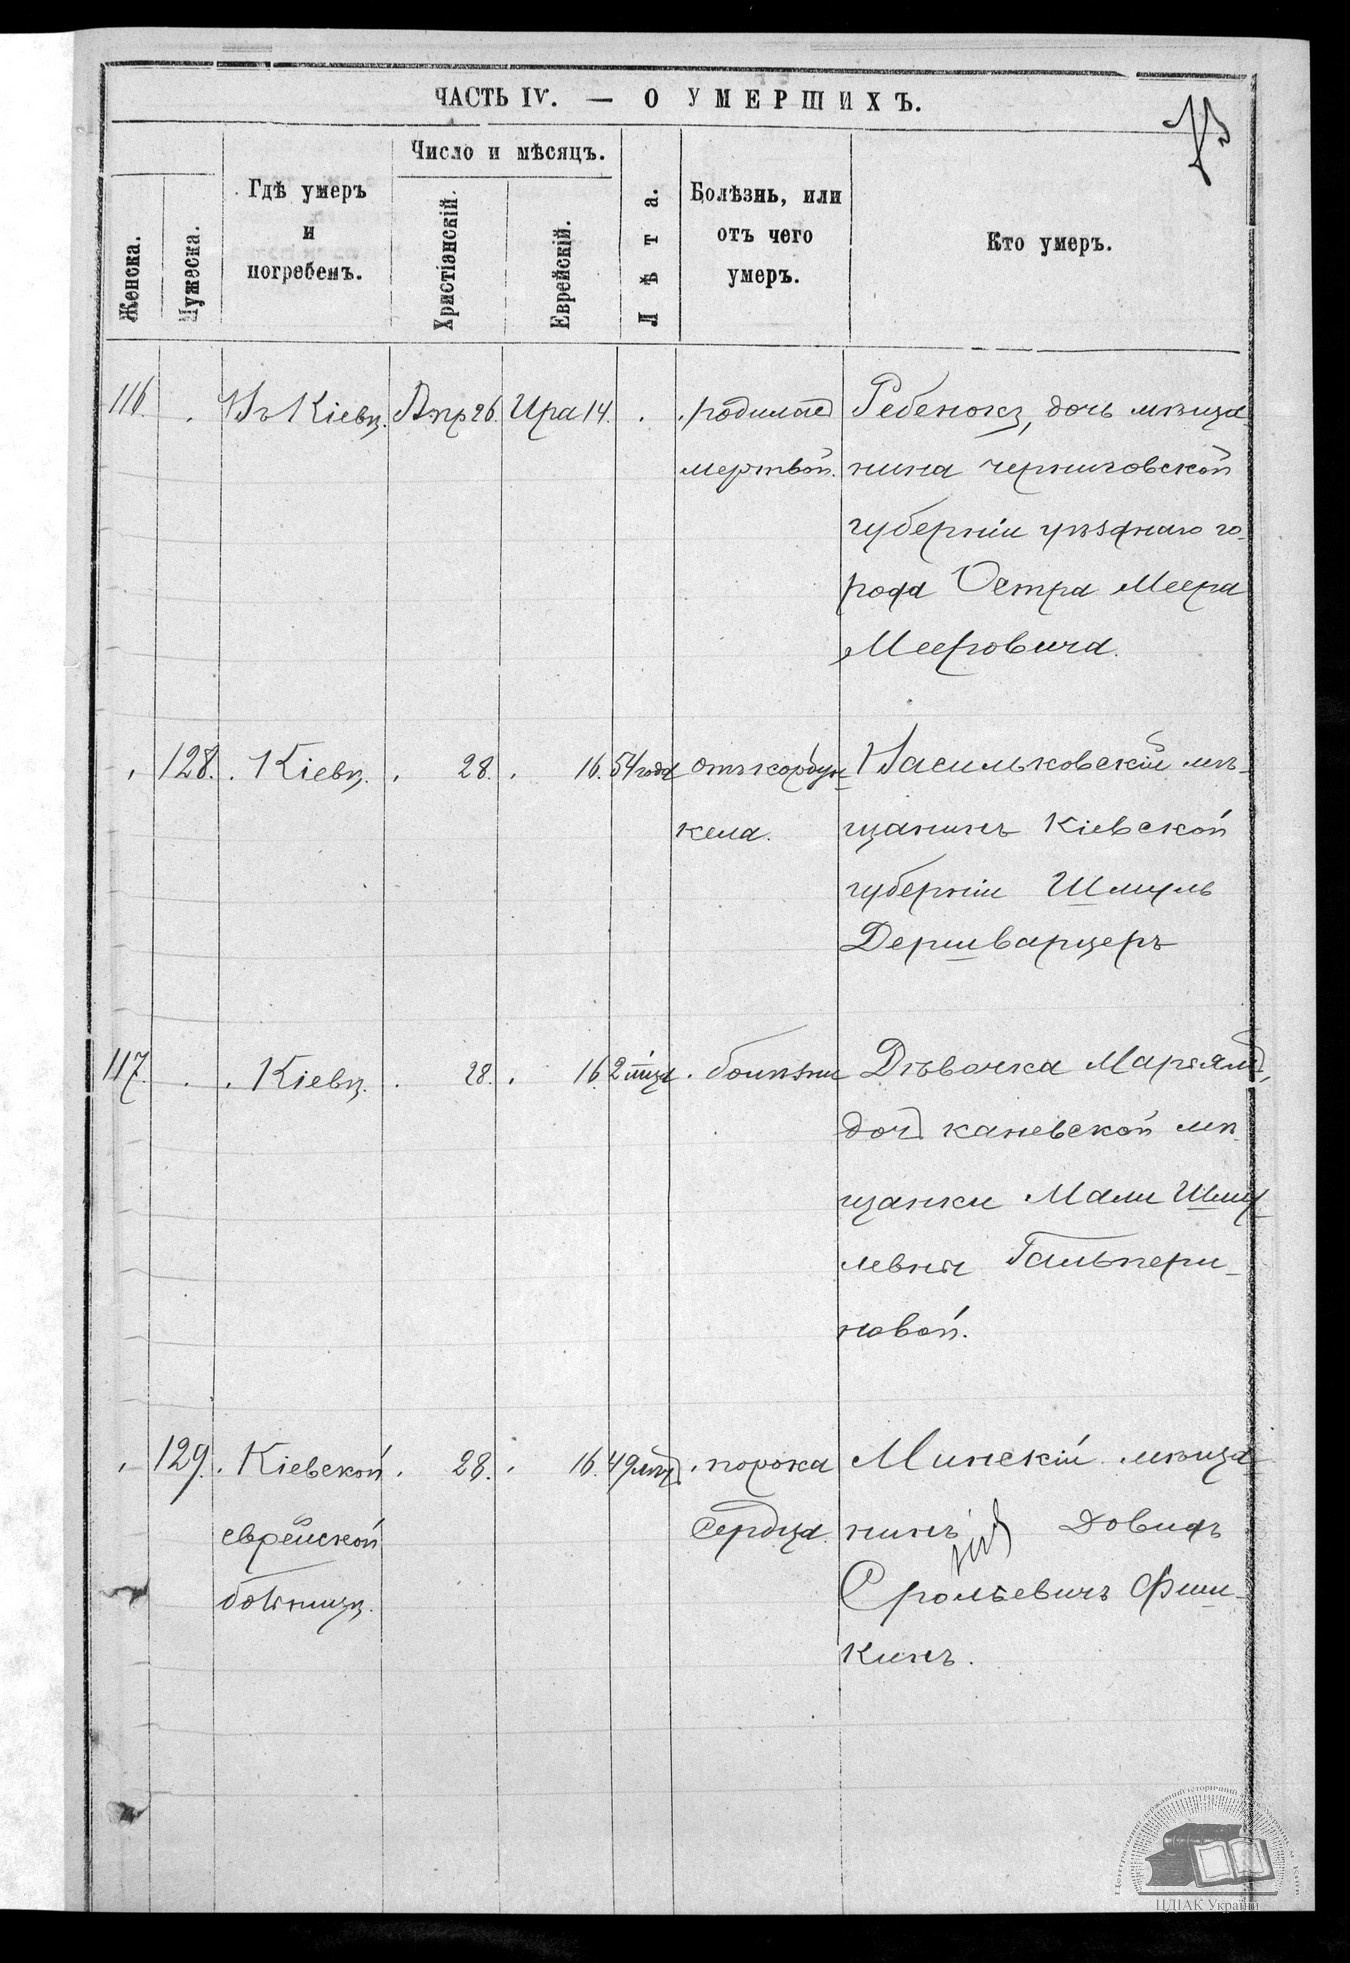 ЧАСТЬ IV. — О УМЕРШИХЪ.
Женска.
Мужеска.
Гдѣ умеръ
и
погребенъ.
Число и мѣсяцъ.
Христіанскій.
Еврейскій.
Лѣта.
Болѣзнь, или
отъ чего
умеръ.
Кто умеръ.
116. Въ Кіевѣ. Апр 26. Ира 14. родилась Ребенокъ, дочь мѣща-
мертвой. нина черниговской
губерніи уѣзднаго го-
рода Остра Меера
Мееровича.
128. Кіевѣ. 28. 16. 54 года отъ корбун- Васильковскій мѣ-
кела. щанинъ Кіевской
губерніи Шмуль
Дершварцеръ
117. Кіевѣ. 28. 16. 2 м-ца болѣзни Дѣвочка Маріямъ,
дочь каневской мѣ-
щанки Мали Шму-
левны Гальпери-
новой.
129. Кіевской 28. 16. 49 лѣтъ. порока Минскій мѣща-
еврейской сердца. нинъ Довидъ
больницѣ. Срольевичъ Фиш-
кинъ.
ЦДІАК України